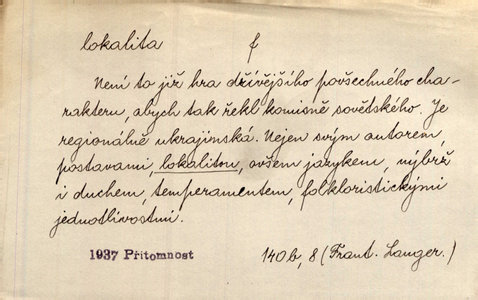 lokalita f
Není to již hra dřívějšího povšechného cha-
rakteru, abych tak řekl komisně sovětského. Je
regionálně ukrajinská. Nejen svým autorem,
postavami, lokalitou, ovšem jazykem, nýbrž
i duchem, temperamentem, folkloristickými
jednotlivostmi.
1937 Přítomnost 140b, 8 (Frant. Langer.)